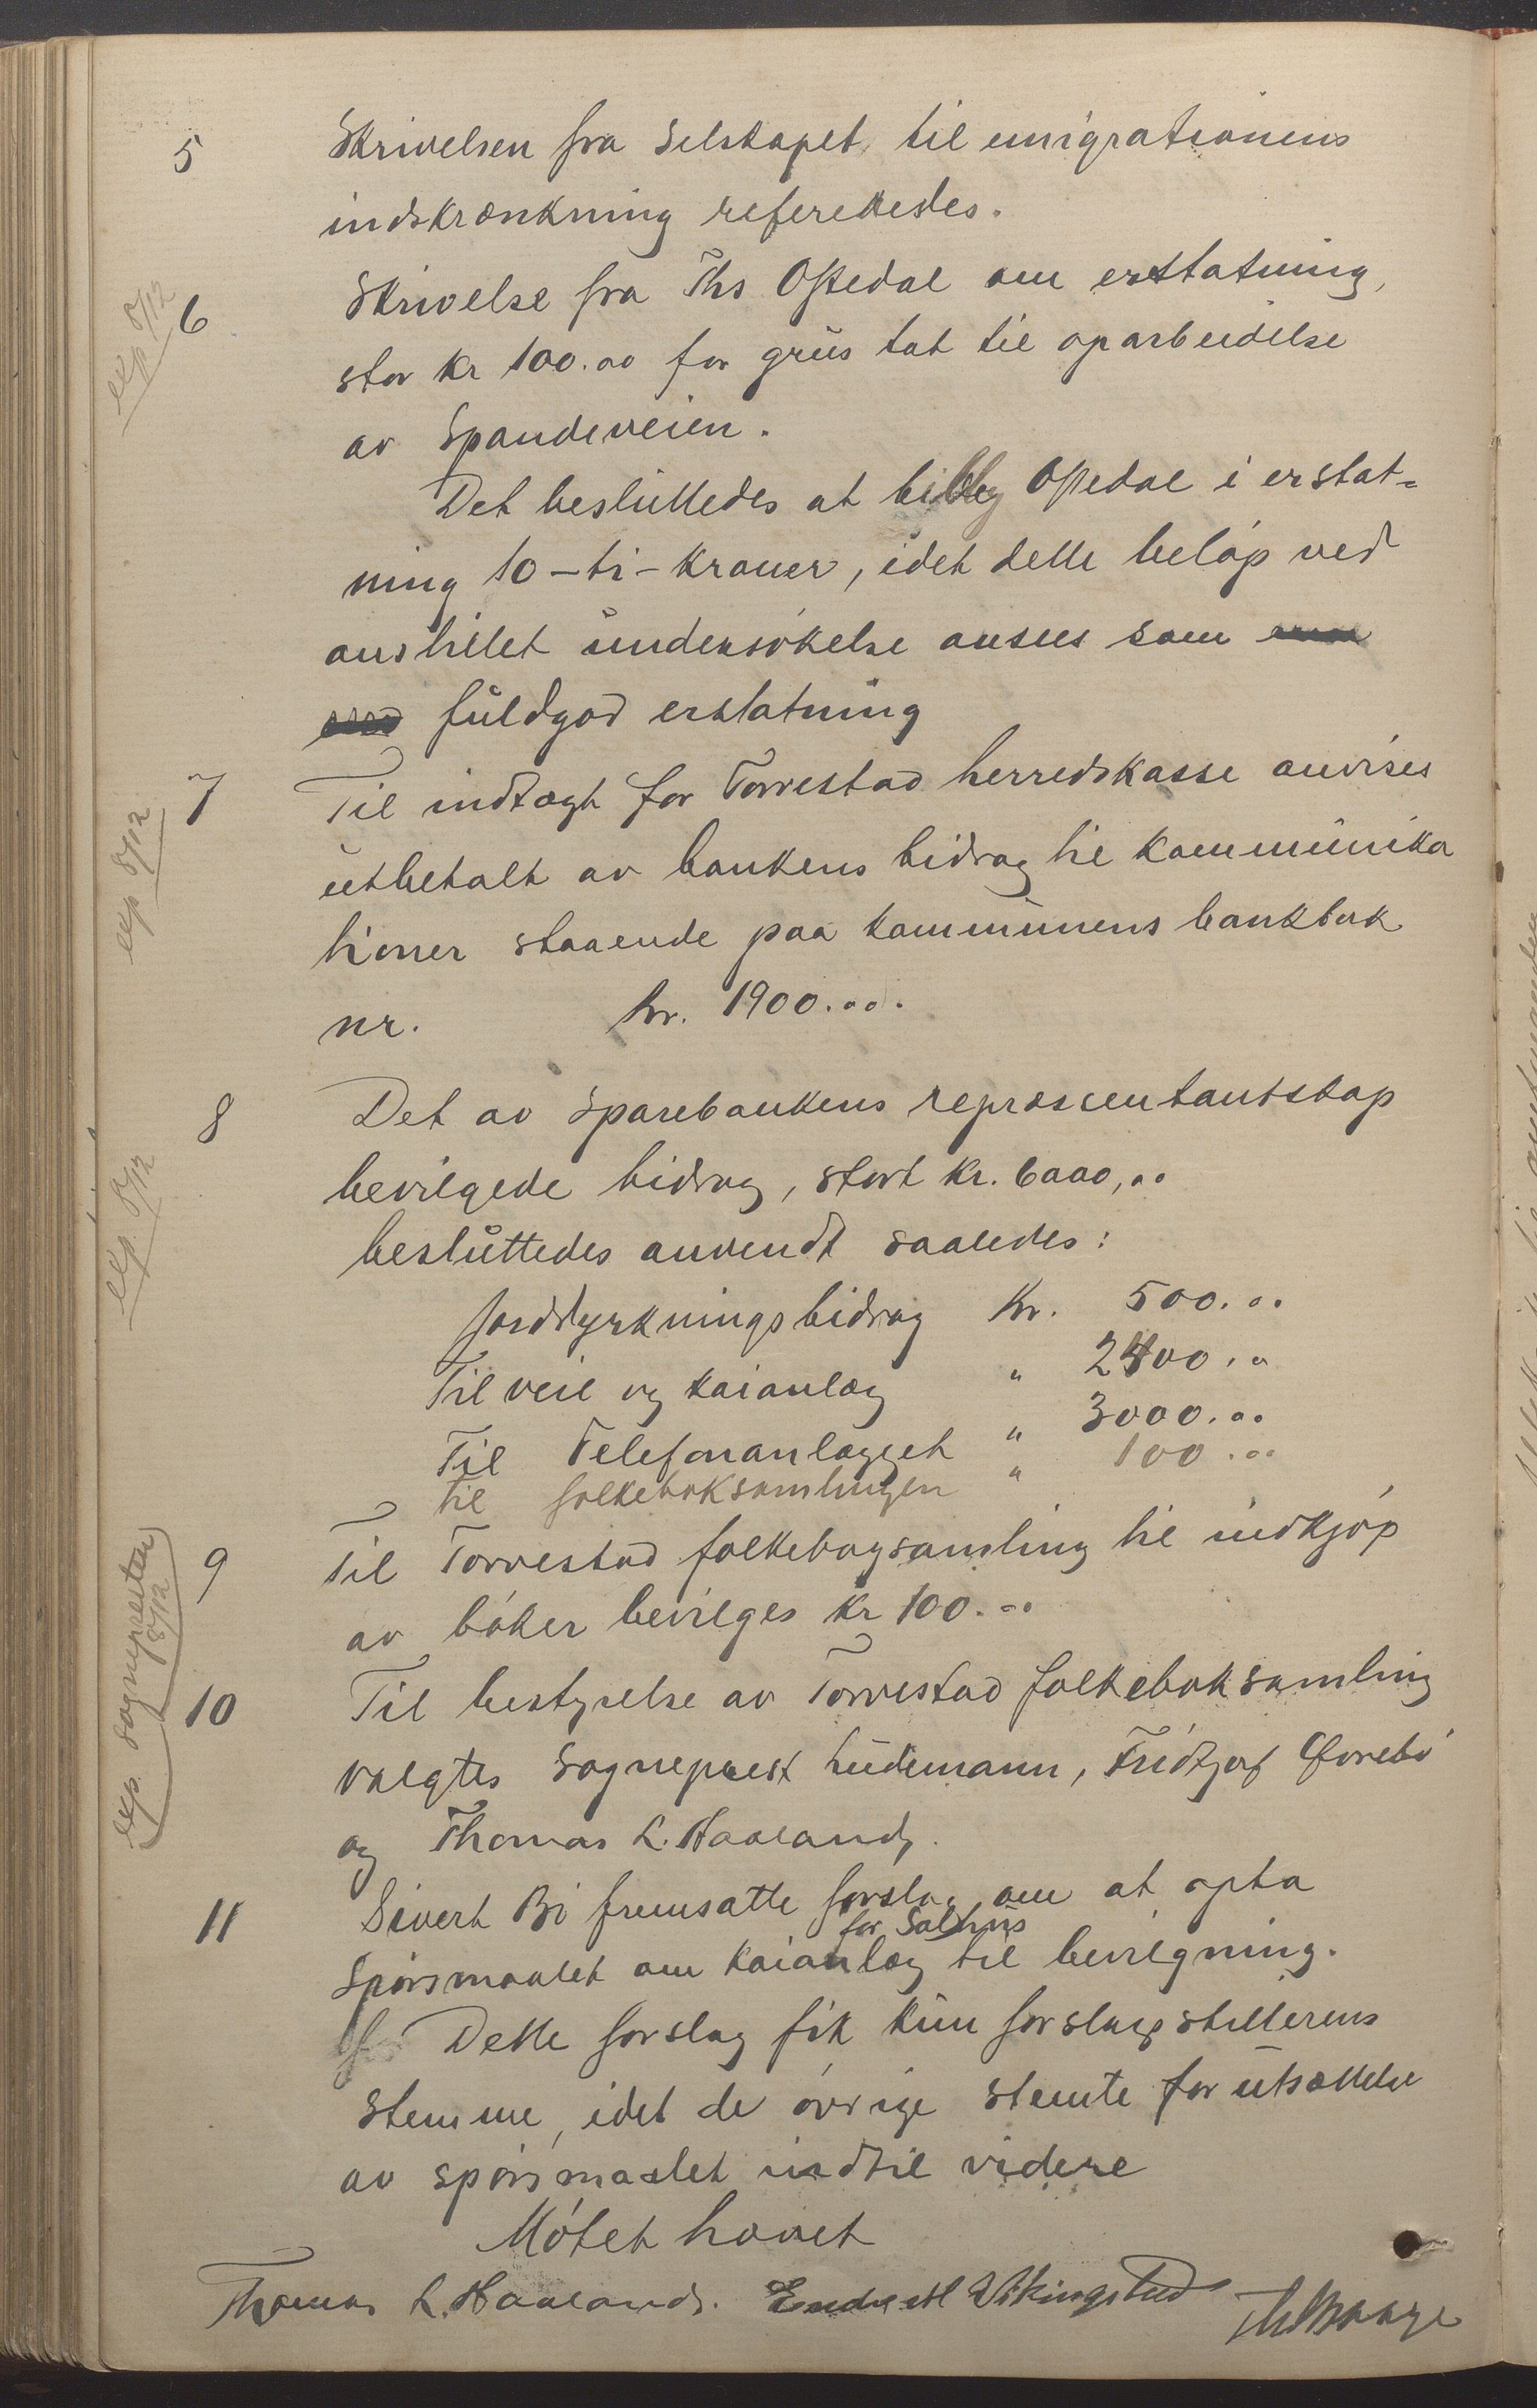 5 Skrivelsen fra Selskapet til emigrationens
indskrænkning refereredes.
exp 8/12
6 Skrivelse fra Ths Opedal om erstatning,
stor kr 100.00 for grus tat til oparbeidelse
av Spandeveien.
Det besluttedes at bilbg Opedal i erstat-
ning 10-ti-kroner, idet dette beløp ved
anstillet undersøkelse ansees som
fuldgod erstatning
exp 8/12
7 Til indtægt for Torvestad herredskasse anvises
utbetalt av bankens bidrag til kommunika
tioner staaende paa kommunens bankbok
nr. kr. 1900.00.
exp. 8/12
8 Det av Sparebankens repræsentantskap
bevilgede bidrag, stort kr. 6000,00
besluttedes anvendt saaledes:
Jorddyrkningsbidrag Kr. 500.00
Til veie og kaianlæg " 2400.00
Til Telefonanlægget " 3000.00
til folkeboksamlingen " 100.00
exp. sognepresten 8/12
9 Til Torvestad folkebogsamling til indkjøp
av bøker bevilges kr 100.00
10 Til bestyrelse av Torvestad folkeboksamling
valgtes Sogneprest Lüdemann, Fridtjof Førebø
og Thomas L. Haaland.
11 Sivert Bø fremsatte forslag om at opta
for Salhus
Spørsmaalet om kaianlæg til bevilgning.
Dette forslag fik kun forslagsstillerens
stemme, idet de øvrige stemte for utsættelse
av spørsmaalet indtil videre
Møtet hævet
Thomas L. Haaland. Endre H Vikingstad